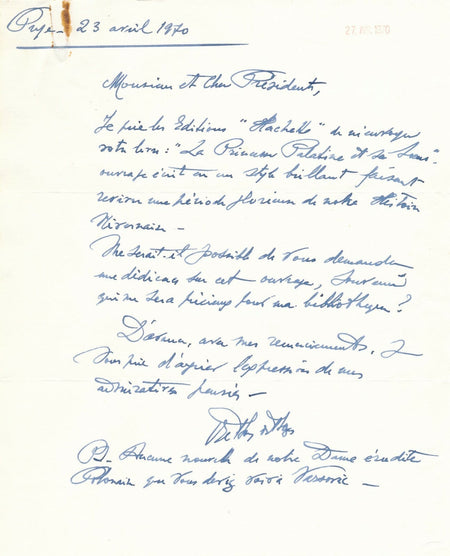 23 avril 1970
27 AVR. 1970
Monsieur et Cher Président,
Je prie les Editions "Hachette" de m'envoyer
votre livre : "La Princesse Palatine et ses Soeurs"
ouvrage écrit en un style brillant faisant
revivre une période glorieuse de notre Histoire
Nivernaise -
Me serait-il possible de vous demander
une dédicace sur cet ouvrage, souvenir
qui me sera précieux pour ma bibliothèque ?
D'avance, avec mes remerciements, je
vous prie d'agréer l'expression de mes
admiratives pensées -
PS. Aucune nouvelle de notre Dame érudite
Polonaise que vous deviez voir à Varsovie -